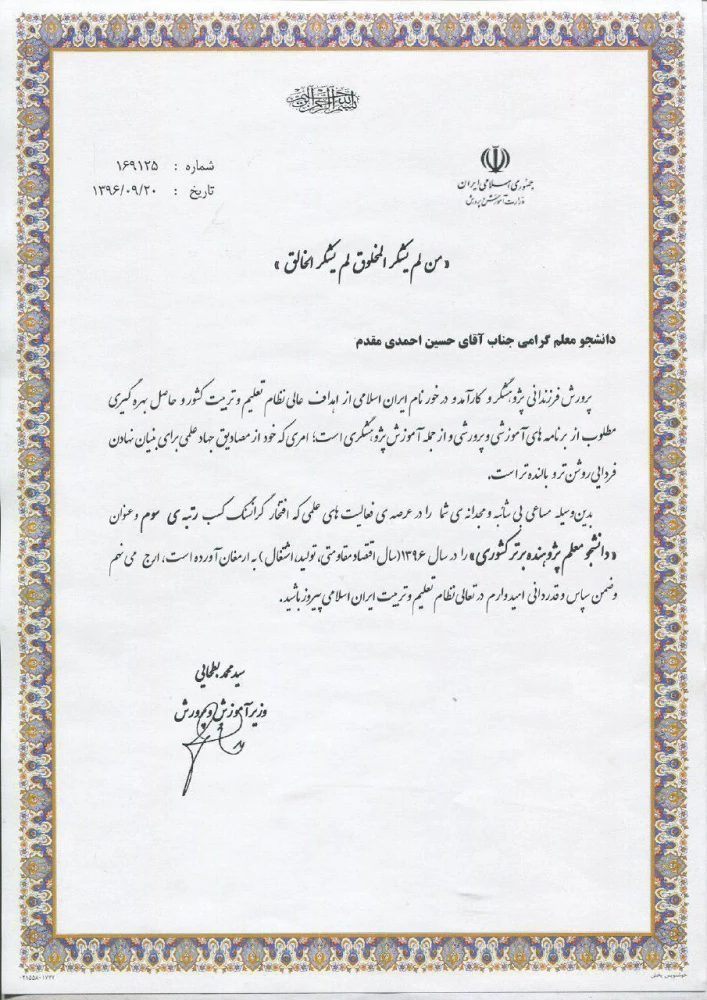 بسم الله الرحمن الرحیم
جمهوری اسلامی ایران
وزارت آموزش و پرورش
شماره : ۱۶۹۱۲۵
تاریخ : ۱۳۹۶/۰۹/۲۰
«من لم یشکر المخلوق لم یشکر الخالق»
دانشجو معلم گرامی جناب آقای حسین احمدی مقدم
پرورش فرزندانی پژوهشگر و کارآمد و در خور نام ایران اسلامی از اهداف عالی نظام تعلیم و تربیت کشور و حاصل بهره گیری
مطلوب از برنامه های آموزشی و پرورشی و از جمله آموزش پژوهشگری است؛ امری که خود از مصادیق جهاد علمی برای بنیان نهادن
فردایی روشن تر و بالنده تر است.
بدین وسیله مساعی بی شائبه و مجدانه ی شما را در عرصه ی فعالیت های علمی که افتخار گرانسنگ کسب رتبه ی سوم و عنوان
«دانشجو معلم پژوهنده برتر کشوری» را در سال ۱۳۹۶(سال اقتصاد مقاومتی، تولید، اشتغال) به ارمغان آورده است، ارج می نهم
و ضمن سپاس و قدردانی امیدوارم در تعالی نظام تعلیم و تربیت ایران اسلامی پیروز باشید.
سید محمد بطحایی
وزیر آموزش و پرورش
خوشنویس پخش